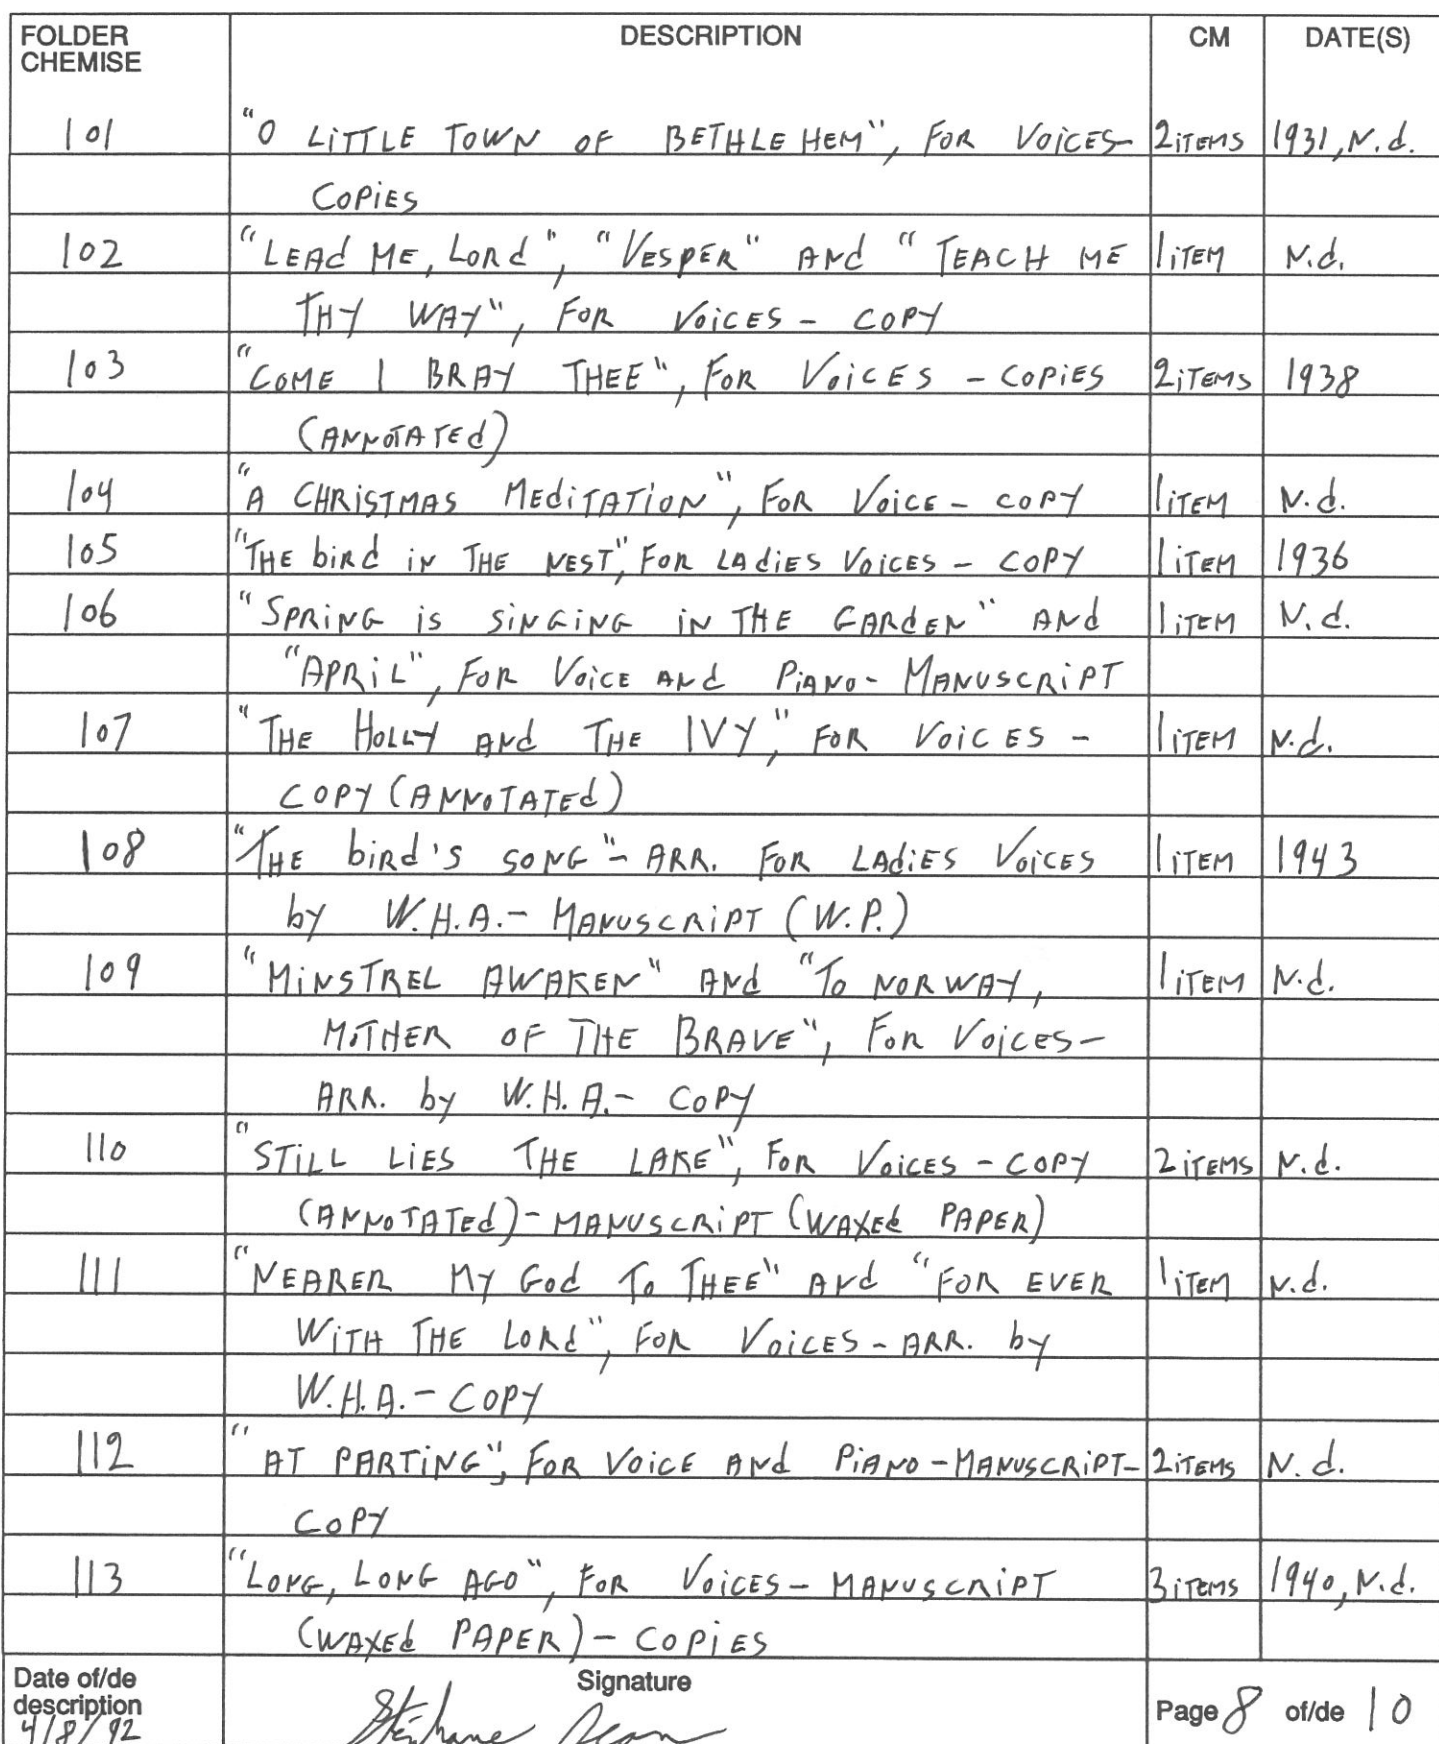 FOLDER DESCRIPTION CM DATE(S)
CHEMISE
101 "O LiTTLE TOWN OF BETHLEHEM", FOR VOiCES- 2 iTEMS 1931, N.d.
COPiES
102 "LEAd ME, LORd", "VESPER" ANd "TEACH ME 1 iTEM N.d.
THY WAY", FOR VOiCES - COPY
103 "COME I BRAY THEE", FOR VOiCES - COPiES 2 iTEMS 1938
(ANNOTATEd)
104 "A CHRiSTMAS MEdiTATiON", FOR VOiCE - COPY 1 iTEM N.d.
105 "THE biRd iN THE NEST", FOR LAdiES VOiCES - COPY 1 iTEM 1936
106 "SPRiNG iS SiNGiNG iN THE GARdEN" ANd 1 iTEM N.d.
"APRiL", FOR VOiCE ANd PiANO - MANUSCRiPT
107 "THE HOLLY ANd THE IVY," FOR VOiCES - 1 iTEM N.d.
COPY (ANNOTATEd)
108 "THE biRd'S SONG" - ARR. FOR LAdiES VOiCES 1 iTEM 1943
by W.H.A. - MANUSCRiPT (W.P.)
109 "MiNSTREL AWAKEN" ANd "TO NORWAY, 1 iTEM N.d.
MOTHER OF THE BRAVE", FOR VOiCES -
ARR. by W.H.A. - COPY
110 "STiLL LiES THE LAKE", FOR VOiCES - COPY 2 iTEMS N.d.
(ANNOTATEd) - MANUSCRiPT (WAXEd PAPER)
111 "NEARER MY God TO THEE" ANd "FOR EVER 1 iTEM N.d.
WiTH THE LORd", FOR VOiCES - ARR. by
W.H.A. - COPY
112 "AT PARTiNG", FOR VOiCE ANd PiANO - MANUSCRiPT - 2 iTEMS N.d.
COPY
113 "LONG, LONG AGO", FOR VOiCES - MANUSCRiPT 3 iTEMS 1940, N.d.
(WAXEd PAPER) - COPiES
Date of/de Signature
description Page 8 of/de 10
4/8/92 Stéphane Jean